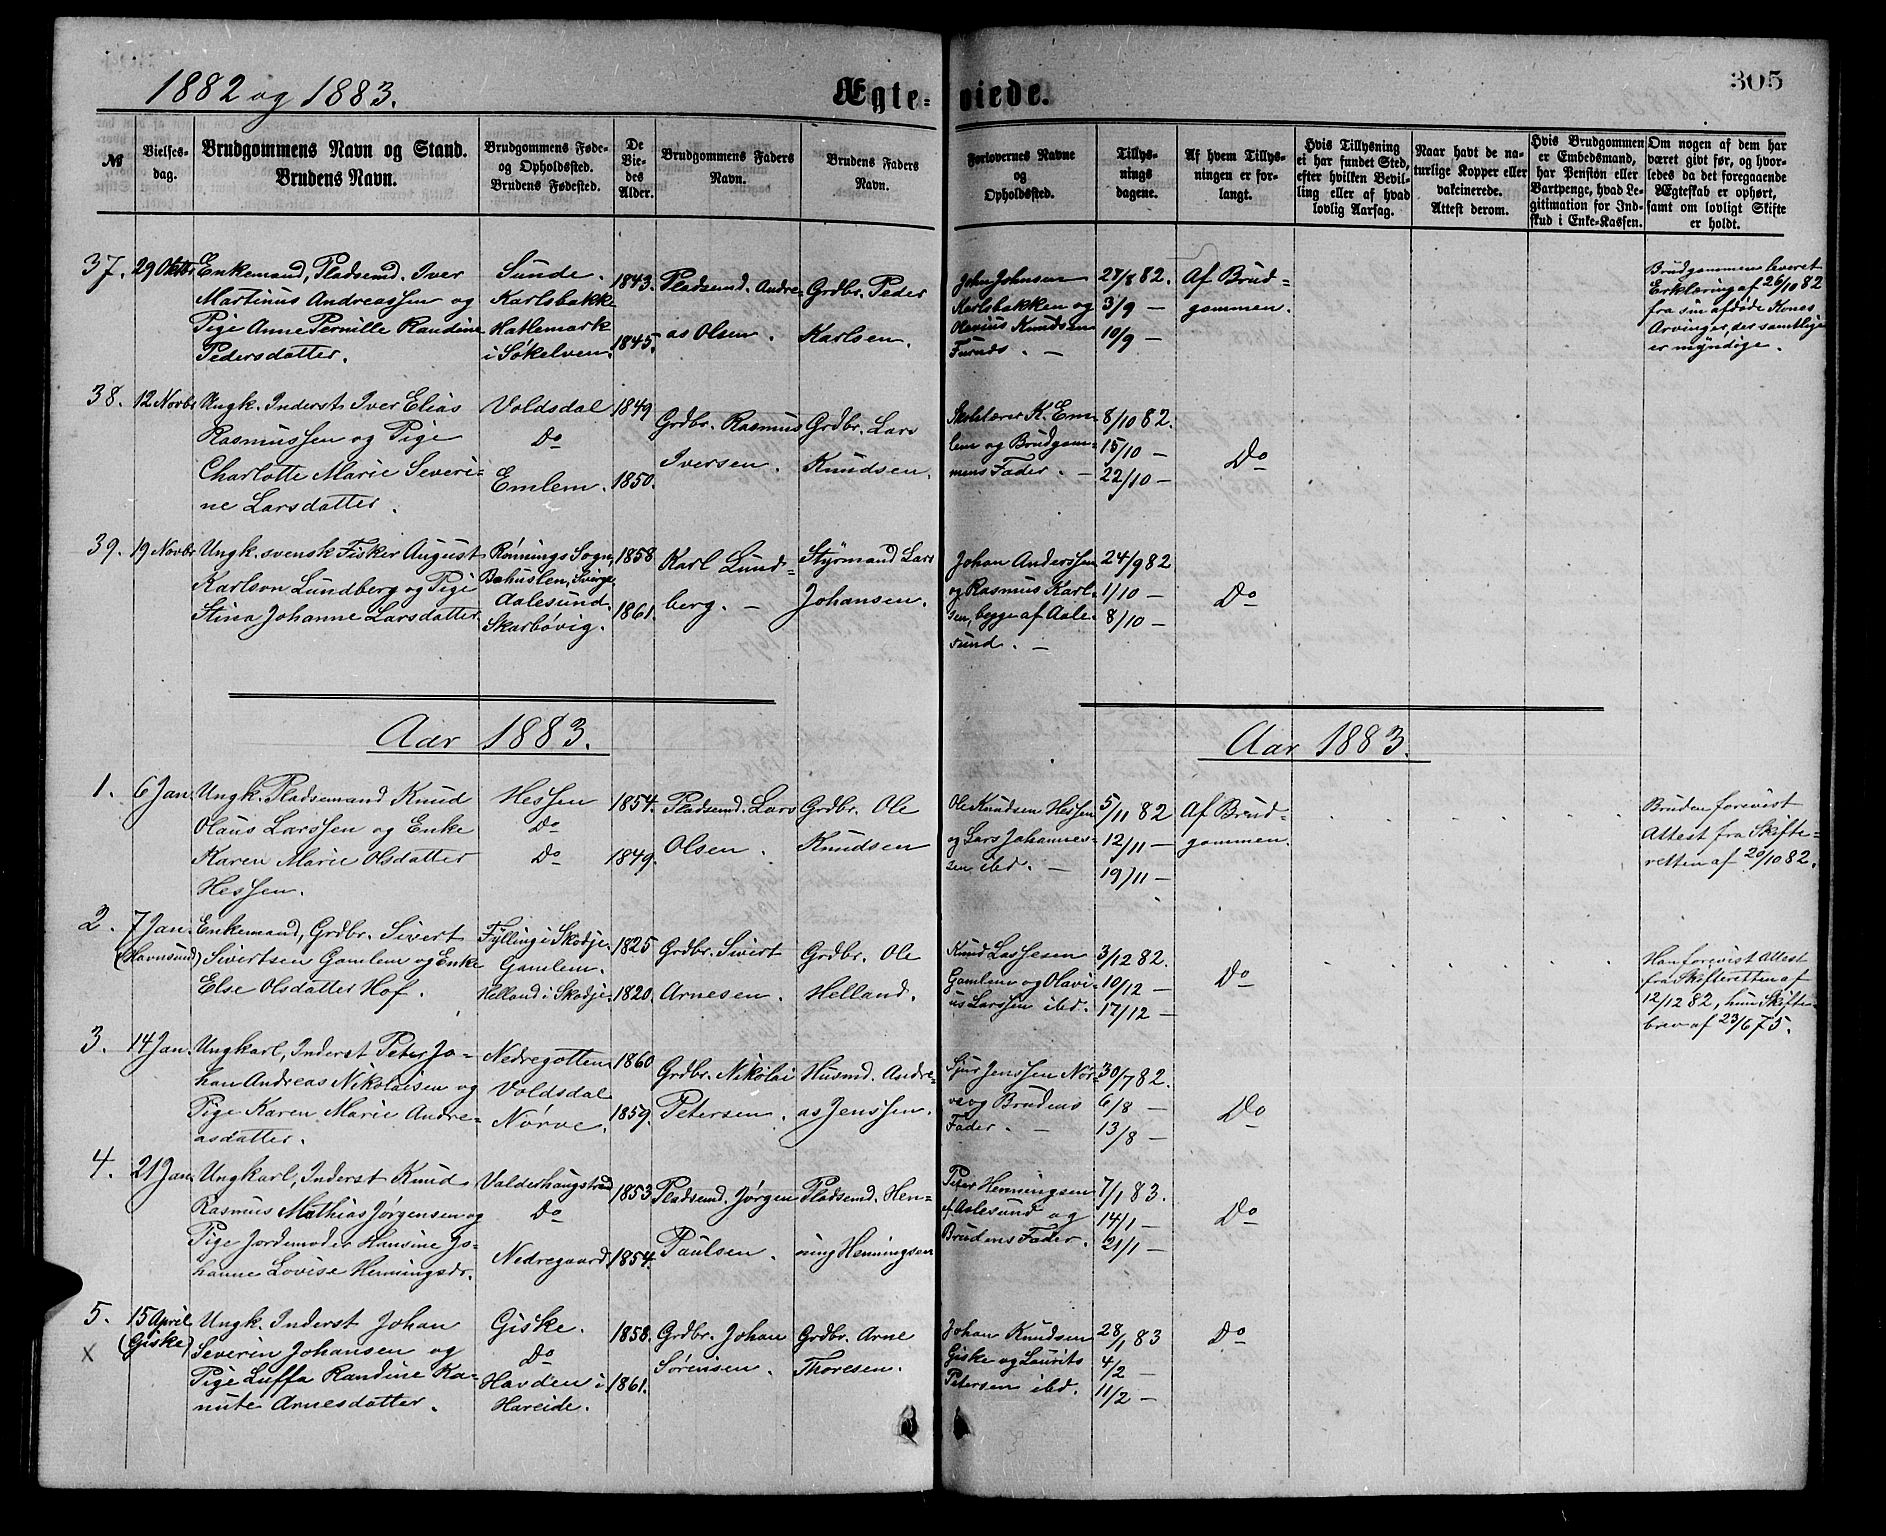 1882 og 1883.
Ægte-
viede.
305
№
Vielses-
dag.
Brudgommens Navn og Stand.
Brudens Navn.
Brudgommens Føde-
og Opholdssted.
Brudens Fødested.
De
Vie-
des
Alder.
Brudgommens Faders
Navn.
Brudens Faders
Navn.
Forlovernes Navne
og
Opholdssted.
Tillys-
nings
dagene.
Af hvem Tillys-
ningen er for-
langt.
Hvis Tillysning
ei har fundet Sted,
efter hvilken Bevil-
ling eller af hvad
lovlig Aarsag.
Naar havt de na-
turlige Kopper eller
vakcinerede.
Attest derom.
Hvis Brudgommen
er Embedsmand,
har Pension eller
Vartpenge, hvad Le-
gitimation for Ind-
skud i Enke-Kassen.
Om nogen af dem har
været givt før, og hvor-
ledes da det foregaaende
Ægteskab er ophørt,
samt om lovligt Skifte
er holdt.
37.
29 Oktbr
Enkemand, Pladsemd. Iver
Martinus Andreassen og
Pige Anne Pernille Randine
Pedersdatter.
Sunde.
Karlsbakk-
Hatlemark
i Søkelven.
1843.
1845.
Pladsemd. Andre-
as Olsen.
Grdbr. Peder
Karlsen.
John Johnsen
Karlsbakken og
Olavius Knudsen
27/8 82.
3/9 —
10/9 —
Af Brud-
gommen.
Brudgommen leveret
Erklæring af 26/10 82
fra sin afdøde Kones
Arvinger, der samtlige
er myndige.
38.
12 Novbr
Ungk. Inderst Iver Elias
Rasmussen og Pige
Charlotte Marie Severi-
ne Larsdatter.
Voldsdal
Do
Emlem.
1849
1850.
Grdbr. Rasmus
Iversen.
Grdbr. Lars
Knudsen.
Skolelærer K. Em-
lem og Brudgom-
mens Fader. —
8/10 82.
15/10 —
22/10 —
Do
39.
19 Novbr
Ungk. svensk Fisker August
Karlson Lundberg og Pige
Stina Johanne Larsdatter
Rønnings Sogn,
Bohuslen, Sverge
Aalesund.
Skarbøvig.
1858
1861.
Karl Lund-
berg. —
Styrmand Lars
Johansen.
Johan Anderssen
og Rasmus Karl-
sen, begge af Aale-
sund. —
24/9 82
1/10 —
8/10 —
Do
Aar 1883.
Aar 1883.
1.
6 Jan.
Ungk. Pladsemand Knud
Olaus Larssen og Enke
Karen Marie Olsdatter
Hessen.
Hessen
Do
Do
1854.
1849.
Pladsemd. Lars
Olsen.
Grdbr. Ole
Knudsen
Ole Knudsen Hessen
og Lars Johannes-
sen ibd. —
5/11 82
12/11 —
19/11 —
Af Brud-
gommen.
Bruden forevist
Attest fra Skifte-
retten af 20/10 82.
2.
7 Jan.
(Havnsund)
Enkemand, Grdbr. Sivert
Sivertsen Gamlem og Enke
Else Olsdatter Hof.
Fylling i Skodje.
Gamlem.
Helland i Skodje.
1825
1820.
Grdbr. Sivert
Arnesen.
Grdbr. Ole
Helland.
Knud Lassesen
Gamlem og Olavi-
us Larssen ibd.
3/12 82.
10/12 —
17/12 —
Do
Han forevist Attest
fra Skifteretten af
12/12 82, hun Skifte-
brev af 23/6 75.
3.
14 Jan.
Ungkarl, Inderst Peter Jo-
han Andreas Nikolaisen og
Pige Karen Marie Andre-
asdatter.
Nedregotten
Voldsdal
Nørve.
1860
1859.
Grdbr. Nikolai
Petersen.
Husmd. Andre-
as Jenssen.
Sjur Jenssen Nør-
ve og Brudens
Fader. —
30/7 82.
6/8 —
13/8 —
Do
4.
21 Jan.
Ungkarl, Inderst Knud
Rasmus Mathias Jørgensen og
Pige Jordemoder Hansine Jo-
hanne Lovise Henningsdr.
Valderhaugstrand
Do
Nedregaard
1853
1854.
Pladsemd. Jørgen
Paulsen.
Pladsemd. Hen-
ning Henningsen
Peter Henningsen
af Aalesund og
Brudens Fader.
7/1 83.
14/1 —
21/1 —
Do
5.
X
15 April
(Giske)
Ungk. Inderst Johan
Severin Johansen og
Pige Luffa Randine Ka-
nute Arnesdatter.
Giske.
Do
Havden i
Hareide.
1858.
1861.
Grdbr. Johan
Sørensen.
Grdbr. Arne
Thoresen.
Johan Knudsen
Giske og Laurits
Petersen ibd.
28/1 83
4/2 —
11/2 —
Do